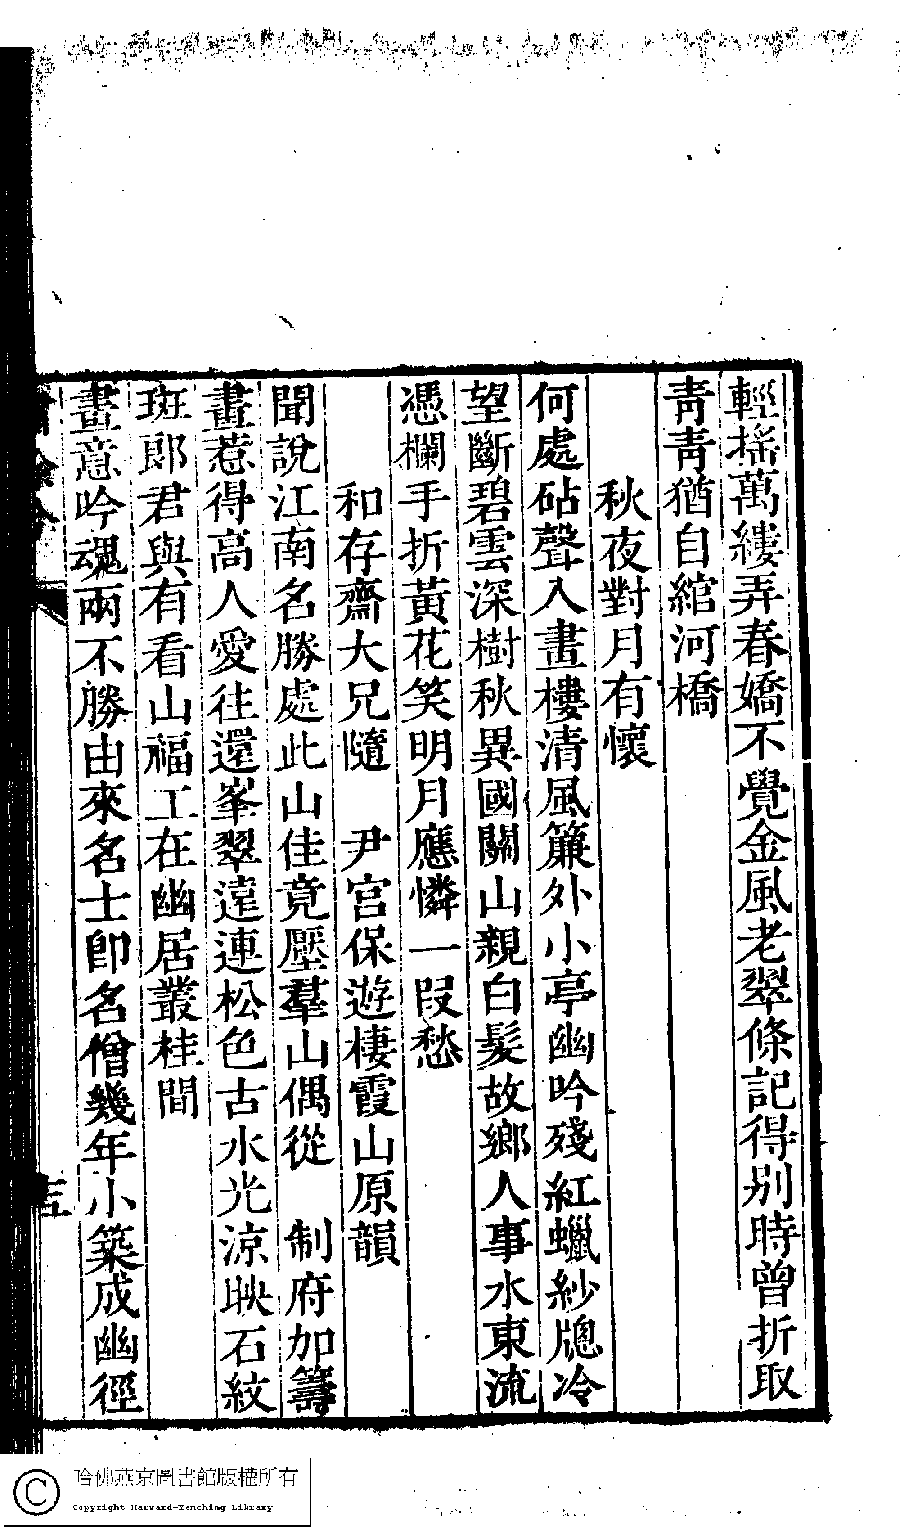 輕搖萬縷弄春嬌不覺金風老翠條記得別時曾折取
靑靑猶自綰河橋
秋夜對月有懷
何處砧聲入畫樓淸風簾外小亭幽吟殘紅蠟紗牕冷
望斷碧雲深樹秋異國關山親白髮故鄉人事水東流
憑欄手折黃花笑明月應憐一段愁
和存齋大兄隨　尹宮保遊棲霞山原韻
聞說江南名勝處此山佳竟壓羣山偶從　制府加籌
畫惹得高人愛往還峯翠遠連松色古水光涼映石紋
斑郞君與有看山福工在幽居叢桂間
畫意吟魂兩不勝由來名士卽名僧幾年小築成幽徑
哈佛燕京圖書館版權所有
Copyright Harvard-Yenching Library